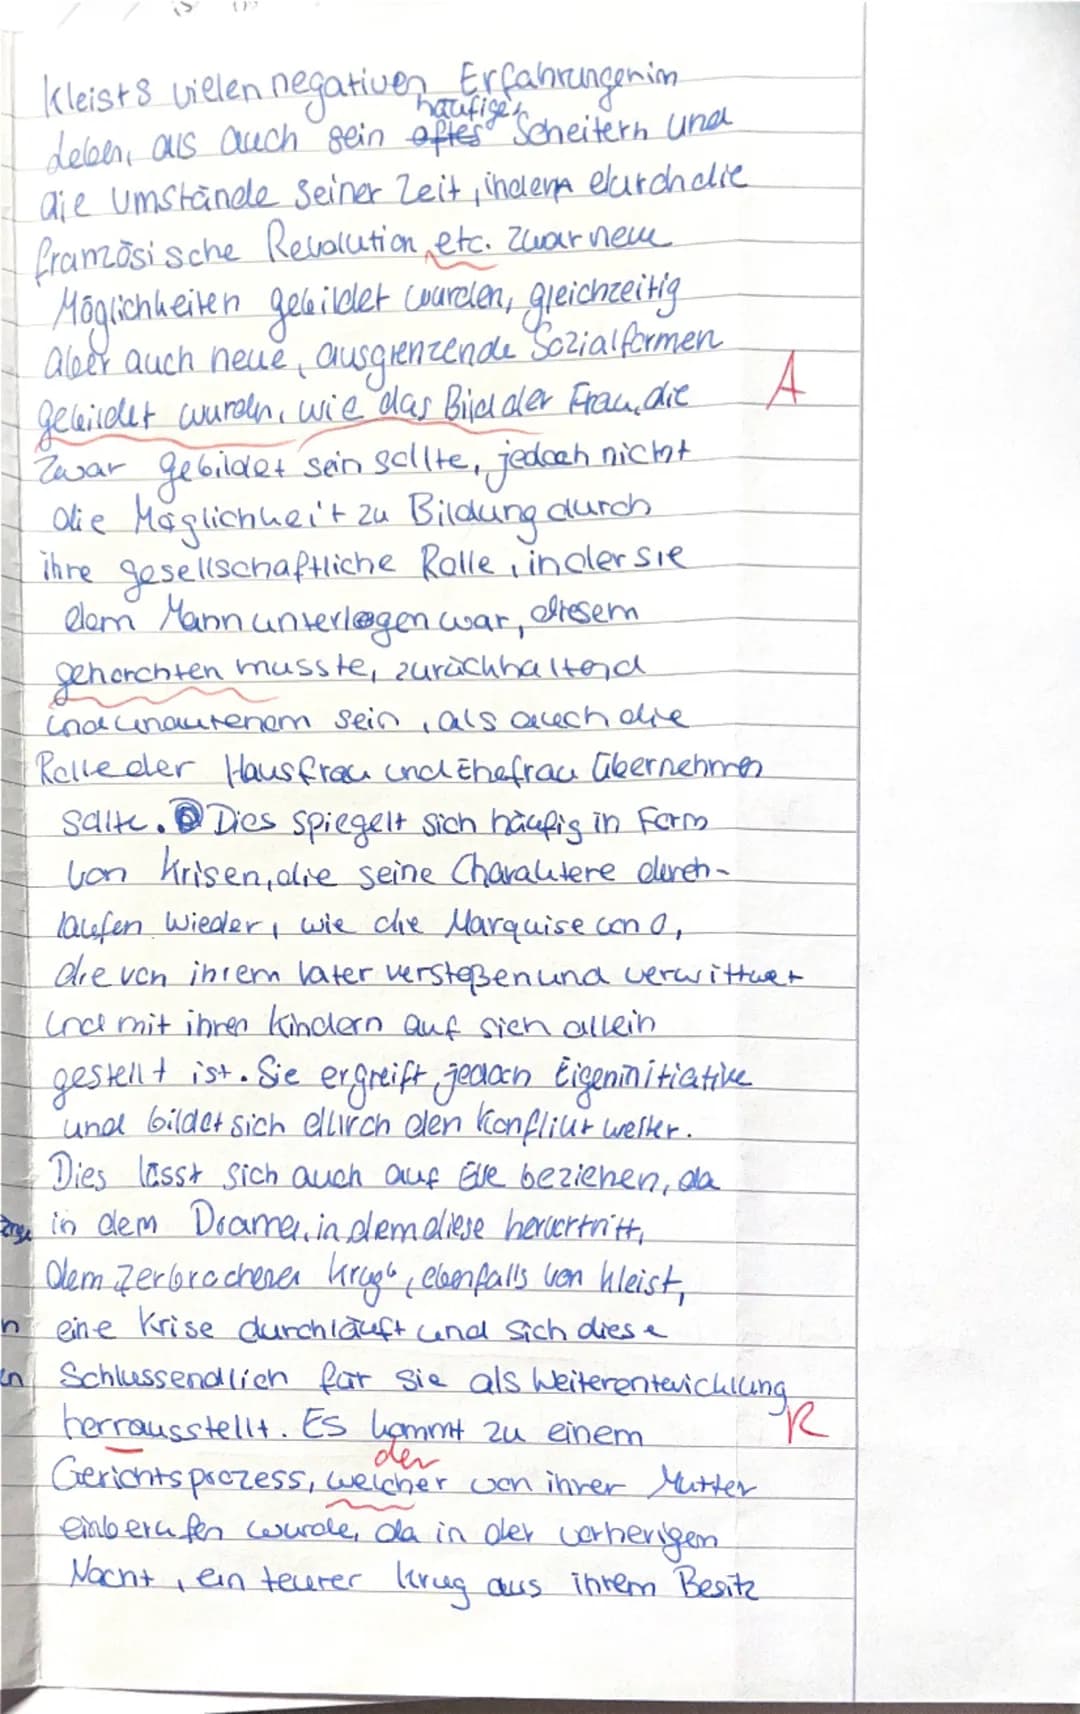 Kleists vielen negativen Erfahrungen im
häufiges
Leben, als auch sein oftes Scheitern und
die Umstände seiner Zeit, indem durch die
französische Revolution etc. zwar neue
Möglichkeiten gebildet wurden, gleichzeitig
aber auch neue, ausgrenzende Sozialformen
gebildet wurden, wie das Bild der Frau, die
A
zwar gebildet sein sollte, jedoch nicht
die Möglichkeit zu Bildung durch
ihre gesellschaftliche Rolle, in der sie
dem Mann unterlegen war, diesem
gehorchten musste, zurückhaltend
und sein, als auch die
Rolle der Hausfrau und Ehefrau übernehmen
sollte. Dies spiegelt sich häufig in Form
von Krisen, die seine Charaktere durch-
laufen wieder, wie die Marquise von O,
die von ihrem Vater verstoßen und verwittwet
und mit ihren Kindern auf sich allein
gestellt ist. Sie ergreift jedoch Eigeninitiative
und bildet sich durch den Konflikt weiter.
Dies lässt sich auch auf Eve beziehen, da
in dem Drama, in dem diese hervortritt,
dem zerbrochenen Krug, ebenfalls von Kleist,
eine Krise durchläuft und sich diese
Schlussendlich für sie als Weiterentwicklung
herrausstellt. Es kommt zu einem
R
der
Gerichtsprozess, welcher von ihrer Mutter
einberufen wurde, da in der vorherigen
Nacht, ein teurer Krug aus ihrem Besitz